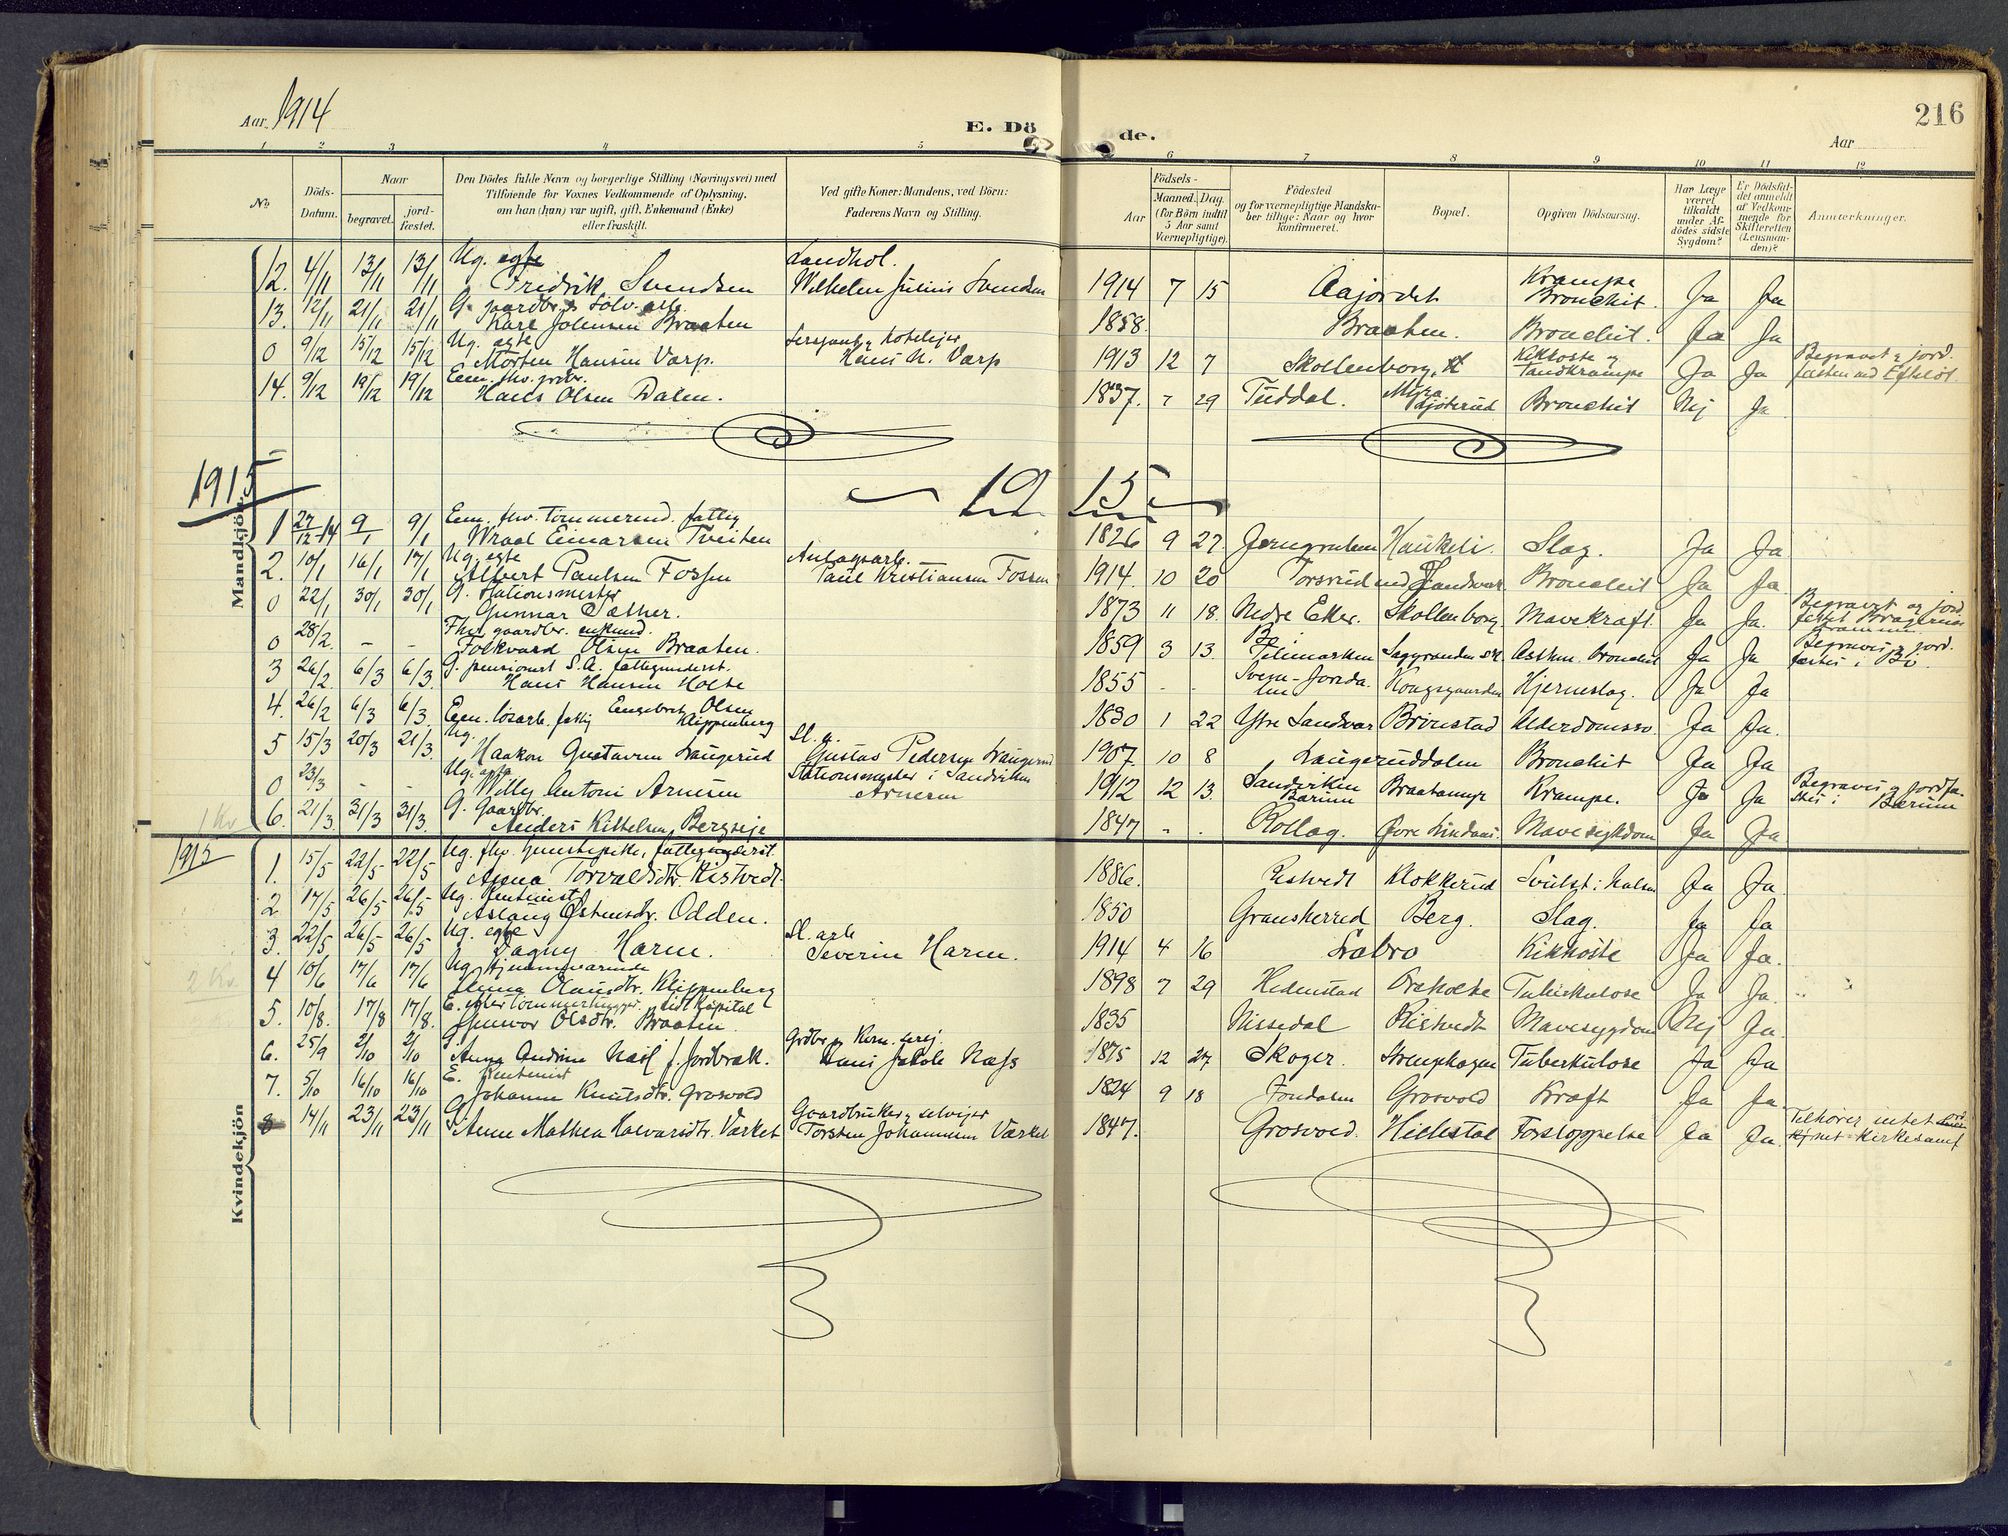 Aar 1914
E. Dö de.
Aar
216
1 2 3 4 5 6 7 8 9 10 11 12
No
Döds-Datum.
Naar
begravet.
jord-fæstet.
Den Dödes fulde Navn og borgerlige Stilling (Næringsvei) med
Tilföiende for Voxnes Vedkommende af Oplysning,
om han (hun) var ugift, gift, Enkemand (Enke)
eller fraskilt.
Ved gifte Koner: Mandens, ved Börn:
Faderens Navn og Stilling.
Födsels-
Aar
Maaned. Dag.
(for Börn indtil
5 Aar samt
Værnepligtige).
Födested
og for værnepligtige Mandska-
ber tillige: Naar og hvor
konfirmeret.
Bopæl.
Opgiven Dödsaarsag.
Har Læge
været
tilkaldt
under Af-
dödes sidste
Sygdom?
Er Dödsfal-
det anmeldt
af Vedkom-
mende for
Skifteretten
(Lensman-
den)?
Anmerkninger.
Mandkjön.
12. 4/11 13/11 13/11 Ug. egte Fredrik Svendsen Landhol. Wilhelm Julius Svendsen 1914 7 15 Aajordet Krampe Bronchit. Ja Ja
13. 12/11 21/11 21/11 G. gaardbr. Sölv. arb. Karl Johnsen Braaten 1858. Braaten. Bronchit. Ja Ja
0 9/12 15/12 15/12 Ug. egte Morten Hansen Varp. Sersjant og hotelejer Hans N. Varp 1913 12 7 Skollenborg, st Kikhoste og Tandkrampe Ja Ja Begravet og jord-fæstet ved Efteløt
14. 9/12 19/12 19/12 Em. fhv. Hans Olsen Dalen. 1837. 7 29 Tuddal. Bronchit Nej Ja
1915
1915
1 27/12-14 9/1 9/1 Em. fhv. tömmermd. fattig Wraal Einarsen Tveiten 1826 9 27. Jerngruben Haukeli. Slag. Ja Ja
2. 10/1 16/1 17/1 Ug. egte Albert Paulsen Fossen Anlægsarb. Paul Kristiansen Fossen 1914. 10 20 Torsrud Bronchit Ja Ja.
0 22/1 30/1 30/1 G. Stationsmester Gunnar Sæther. 1873 11 18. Nedre Eker. Skollenborg Mavekræft. Ja Ja. Begravet og jord-
0 28/2. – – Fhv. gaardbr. enkemd. Folkvard Olsen Braaten. 1859 3 13. Bø Telemarken Asthm. Bronchit Ja Ja Begraves og jord-fæstes i Bø
3 26/2. 6/3 6/3. G. pensionist S.A. fattigunderst. Hans Hansen Holte 1855 - - Kongsgaarden Hjerneslag. Ja Ja
4. 26/2 6/3 6/3. Em. lösarb. fattig Engebret Olsen Klippenberg 1830 1 22 Ytre Sandsvær Brönstad Alderdomssv. Ja Ja.
5 15/3 20/3 21/3. Ug. Haakon Gustavsen Laugerud Gustav Pedersen Laugerud 1907. 10 8 Laugeruddalen Bronchit Ja Ja
0 23/3 – Ug. egte Willy Antoni Arnesen Stationsmester i Sandviken Arnesen 1912 12 13. Sandviken Bærum Krampe. Ja Ja Begraves og jordfæ-stes i Bærum
6. 21/3. 31/3 31/3. G. Gaardbr. Anders Kittelsen Bergseje 1847 - . Rollag. Øvre Mavesygdom Ja Ja
1 Kv
1915
Kvindekjön
1. 15/5 22/5 22/5 Ug. fhv. tjenestepike, fattigunderst. Anna Torvaldsdtr. Kistvedt. 1886. Kistvedt Klokkerud Svulst i halsen Ja Ja.
2 17/5 26/5 26/5 Ug. Rentenist Aslaug Østensdtr. Odden. 1850 Gransherred Berg. Slag. Ja Ja
3. 22/5 26/5 26/5 Ug. egte Dagny Harm. Sl. arb Severin Harm. 1914 4 16 Labro Kikhoste Ja Ja.
2 Kv.
4 10/6 17/6 17/6 Ug. hjemmeværende Anna Olausdtr. Klippenberg 1898 7 29 Hedenstad Tuberkulose Ja Ja.
5. 10/8. 17/8 17/8. E. efter tömmerhugger, lidt kapital Gunvor Olsdtr. Braaten. 1835 Nissedal Kistvedt Mavesygdom Nej Ja.
6. 25/9 2/10 2/10 G. Anna Andrine Næss f. Jordbræk. Hans Jakob Næss 1875 12 27. Skoger. Tuberkulose Ja Ja
7. 5/10 16/10 16/10 E. Rentenist Johanne Knutsdtr. Grosvold 1824 9 18 Jondalen Grosvold Kræft Ja Ja.
8 14/11 23/11 23/11 G. Anne Mathea Halvorsdtr. Værket Gaardbruker, selvejer Torsten Johannesen Værket 1847. Grosvold. Hillestad Forstoppelse Ja Ja. Tilhörer intet kirkesamf